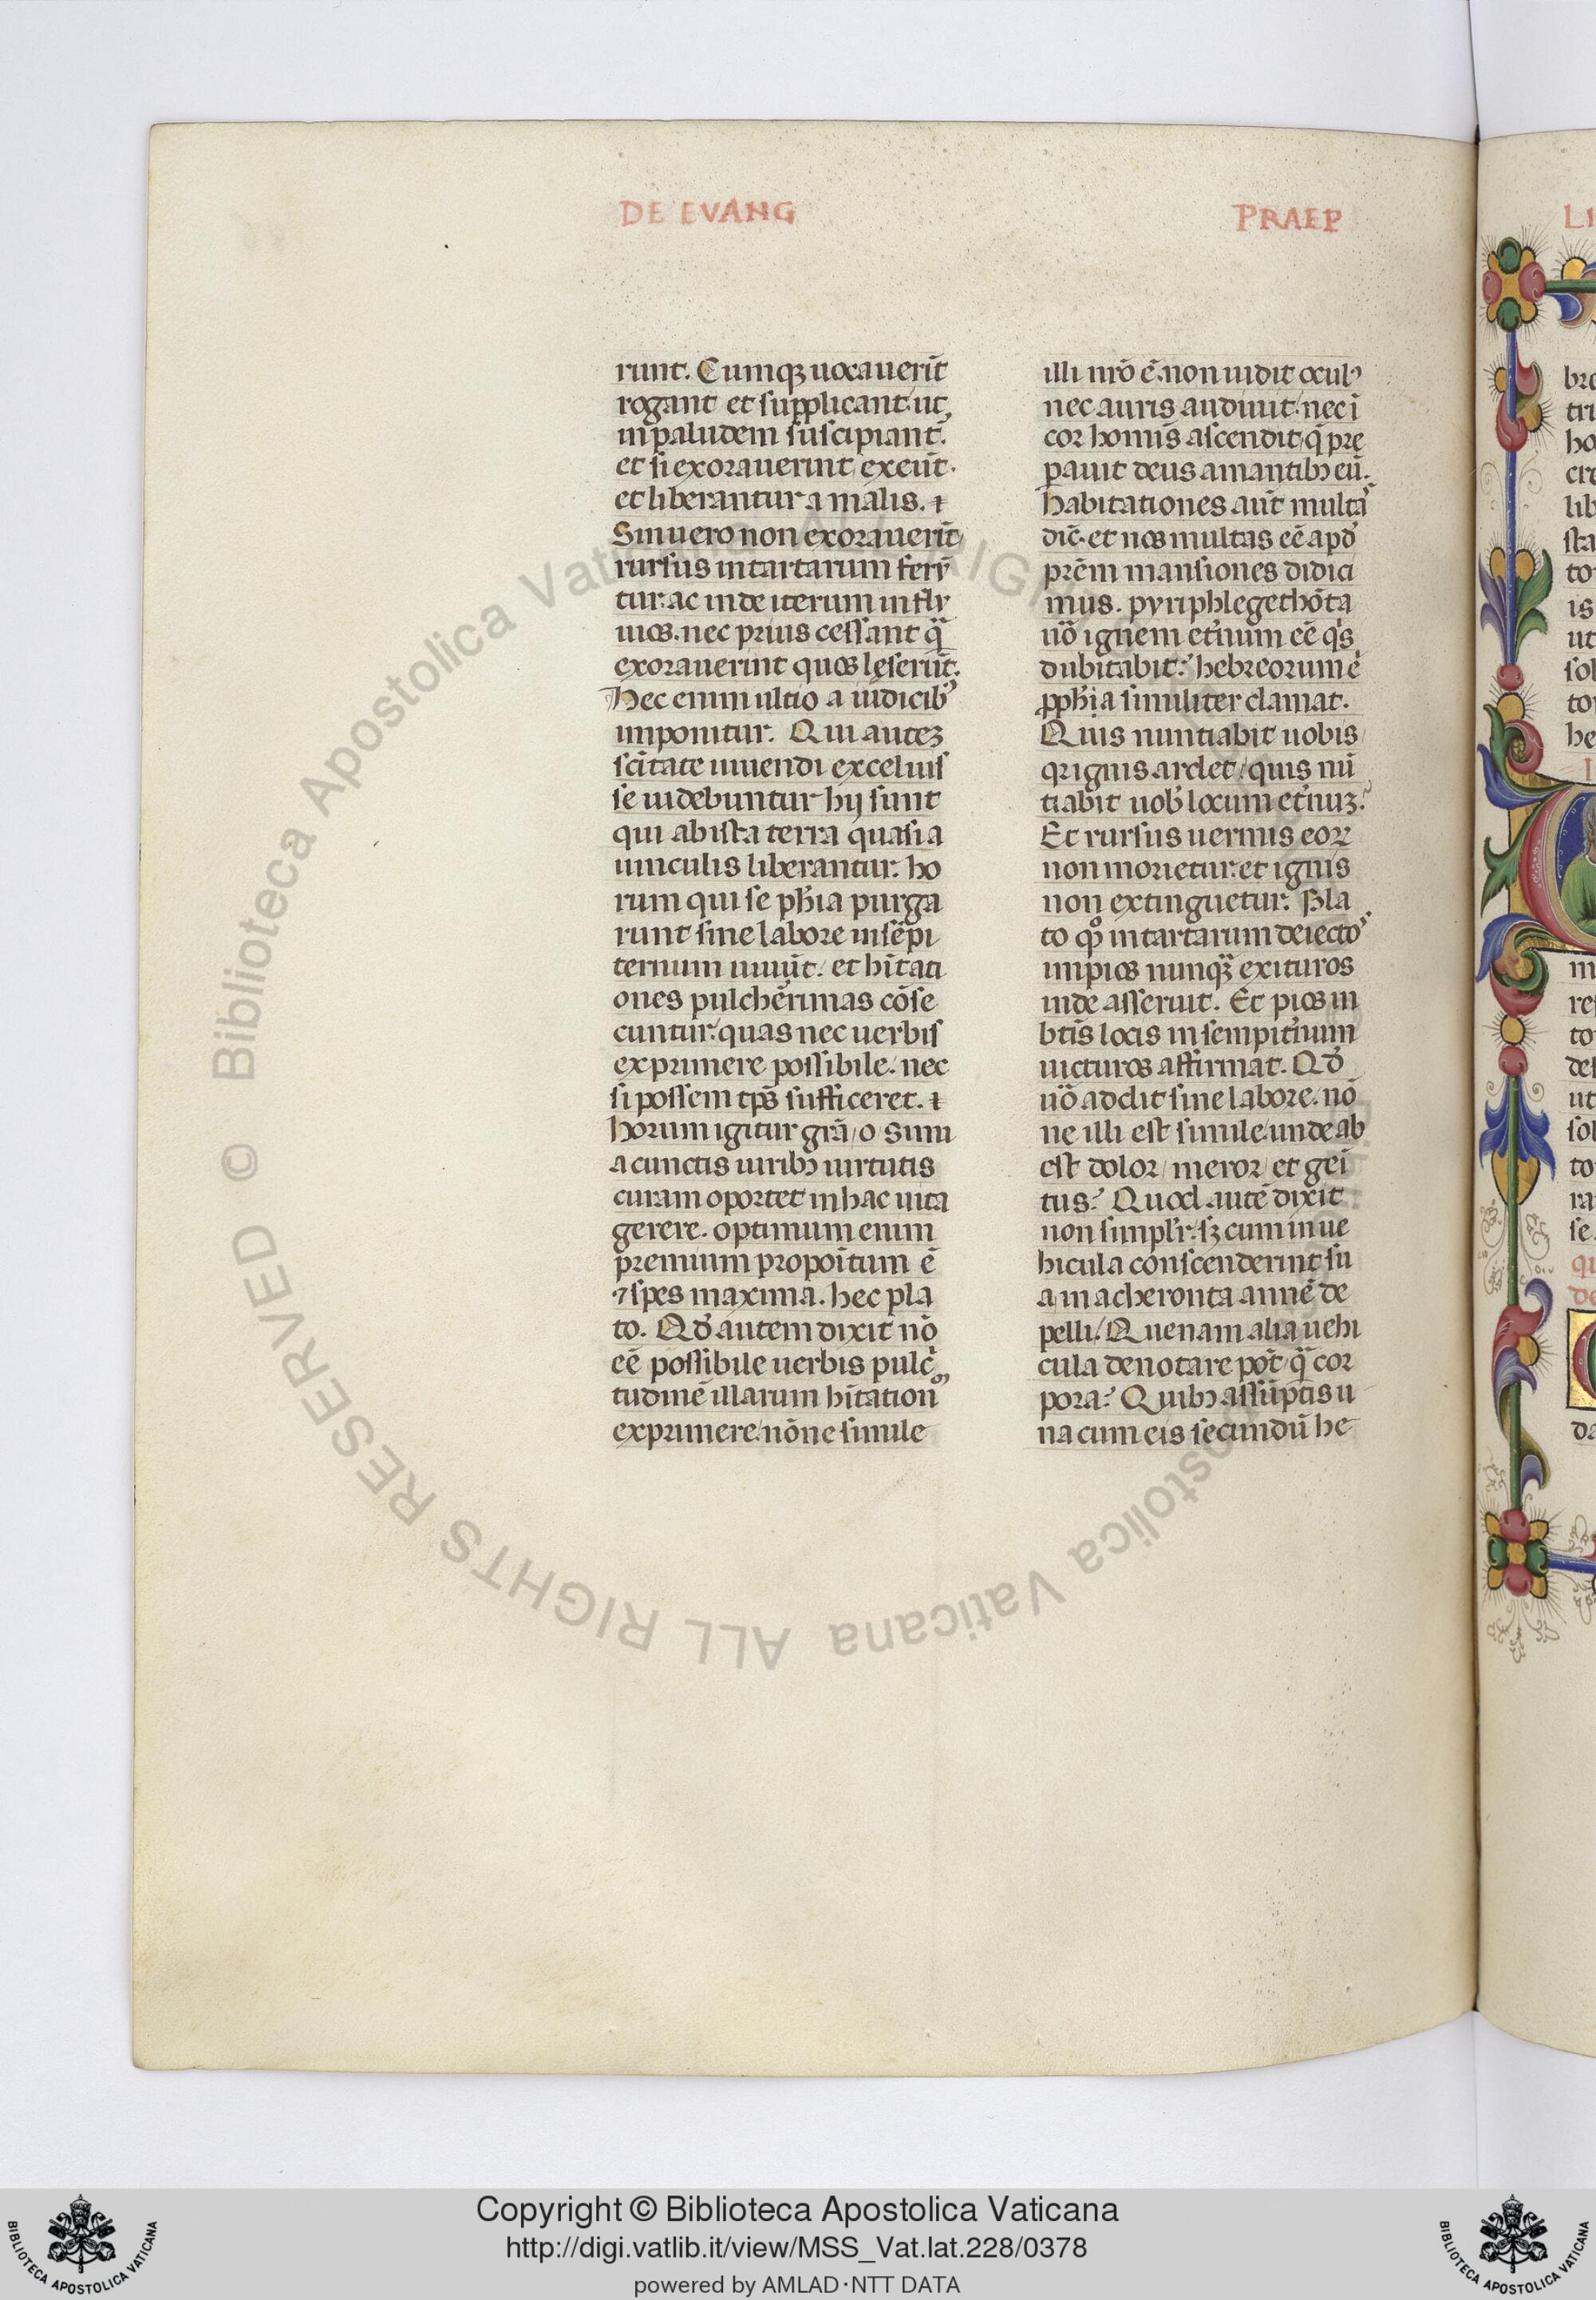 DE EVANG
runt. Cumqꝫ uocauerīt
rogant et supplicant: ut
in paludem suscipiant̄.
et si exorauerint exeūt.
et liberantur a malis.
Sin uero non exorauerīt
rursus in tartarum ferū
tur: ac inde iterum in flu
uios. nec prius cessant q̄
exorauerint quos lęserūt.
Hec enim ultio a iudicibꝰ
imponitur. Qui auteꝫ
sc̄itate uiuendi excelluis
se uidebuntur hij sunt
qui ab ista terra quasi a
uinculis liberantur: ho
rum qui se ph̄ia purga
runt sine labore in sēpi
ternum uiuūt: et hītati
ones pulcherrimas cōse
cuntur: quas nec uerbis
exprimere possibile: nec
si possem tp̄s sufficeret.
horum igitur grā o Simi
a cunctis uiribꝫ uirtutis
curam oportet in hac uita
gerere. optimum enim
premium propoītum ē
⁊ spes maxima. hec pla
to. Qđ autem dixit nō
eē possibile uerbis pulc̄
tudinē illarum hītation
exprimere: nōne simile
PRAEP
illi nr̄o ē: non uidit oculꝰ
nec auris audiuit: nec ī
cor homīs ascendit: q̄ pre
pauit deus amantibꝫ eū.
habitationes aūt multas
dic̄: et nos multas eē apđ
prēm mansiones didici
mus. pyriphlegethōta
uō ignem et̄num eē qͥs
dubitabit? hebreorum ē
ꝓph̄ia similiter clamat.
Quis nuntiabit uobis
qꝛ ignis ardet: quis nū
tiabit uob̄ locum et̄nuꝫ?
Et rursus uermis eoꝝ
non morietur: et ignis
non extinguetur. Pla
to qͦꝫ in tartarum deiectos
impios nunqꝫ exituros
inde asseruit. Et pios in
btīs locis in sempit̄num
uicturos affirmat. Qđ
uō addit sine labore: nō
ne illi est simile: unde ab
est dolor/ meror/ et gēi
tus? Quod autē dixit
non simplr̄: sꝫ cum in ue
hicula conscenderint su
am acheronta amnē de
pelli/ Quenam alia uehi
cula denotare pōt q̄ cor
pora? Quibꝫ assūptis u
na cum eis secundū he
LI
Copyright © Biblioteca Apostolica Vaticana
http://digi.vatlib.it/view/MSS_Vat.lat.228/0378
powered by AMLAD·NTT DATA